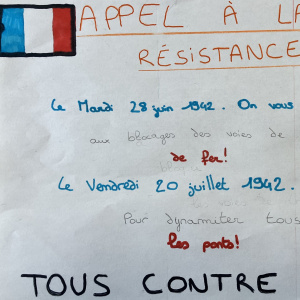 APPEL À LA
RÉSISTANCE
Le Mardi 28 juin 1942. On vous
aux blocages des voies de
de fer!
Le Vendredi 20 juillet 1942.
Pour dynamiter tous
les ponts!
TOUS CONTRE